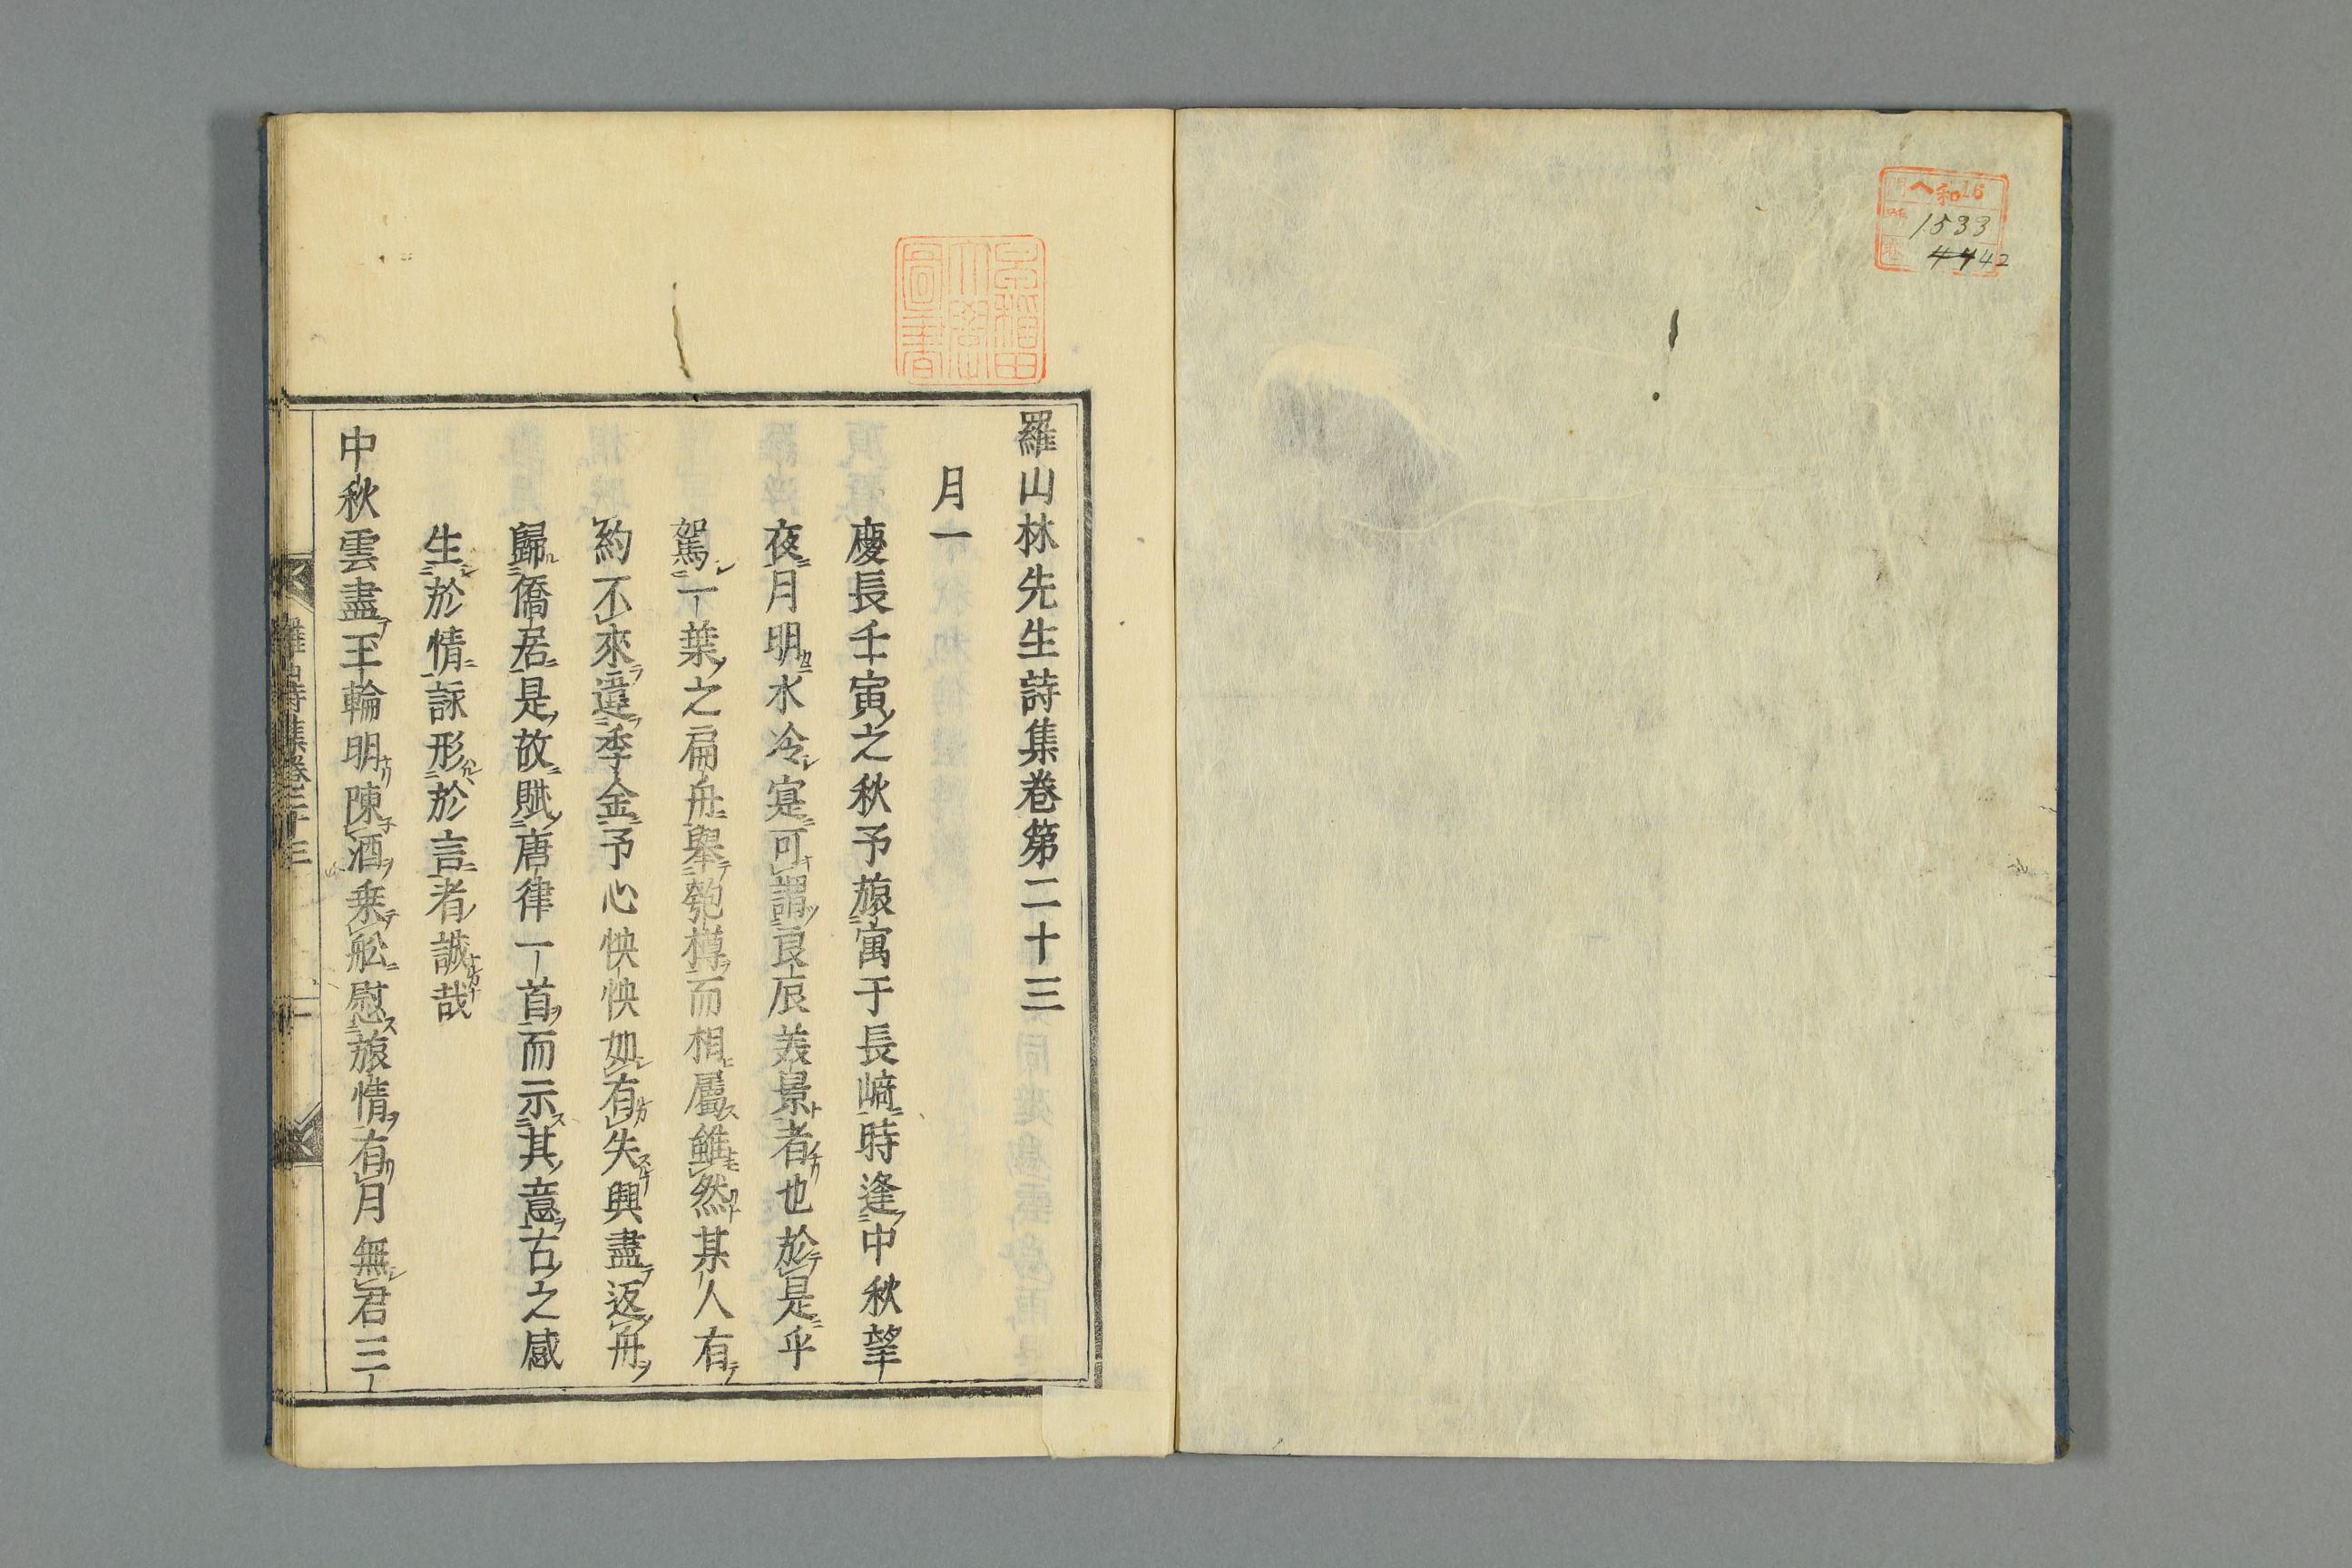 ヘ和16
1533
42
早稲田
大學
圖書
羅山林先生詩集卷第二十三
月一
慶長壬寅之秋予旅寓于長﨑時逢中秋望
夜月明水冷寔可謂良辰美景者也於是乎
駕一葉之扁舟擧匏樽而相屬雖然某人有
約不來違季金予心怏怏如有失興盡返舟
歸僑居是故賦唐律一首而示其意古之感
生於情詠形於言者誠哉
中秋雲盡玉輪明陳酒乗舩慰旅情有月無君三
羅山詩集卷二十三
一